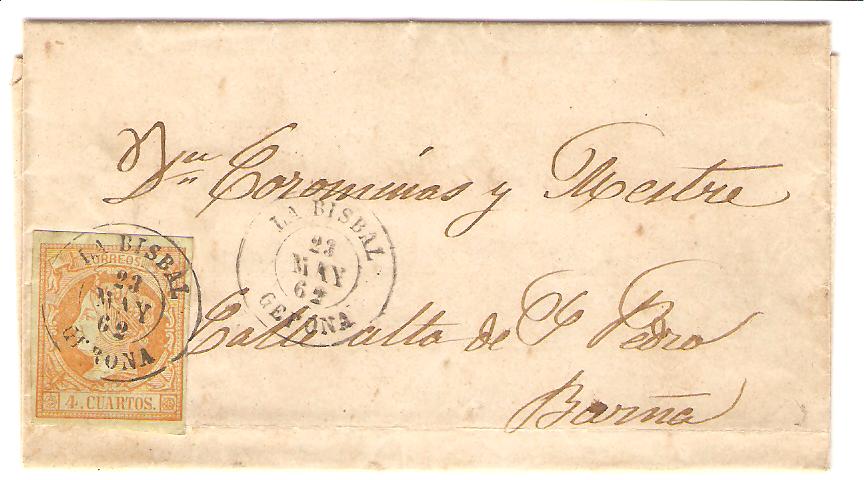 Corominas y Mestre
LA BISBAL
23
MAY
62
GERONA
CORREOS
LA BISBAL
23
MAY
62
GERONA
4 CUARTOS.
Calle alta de S Pedro
Barñа